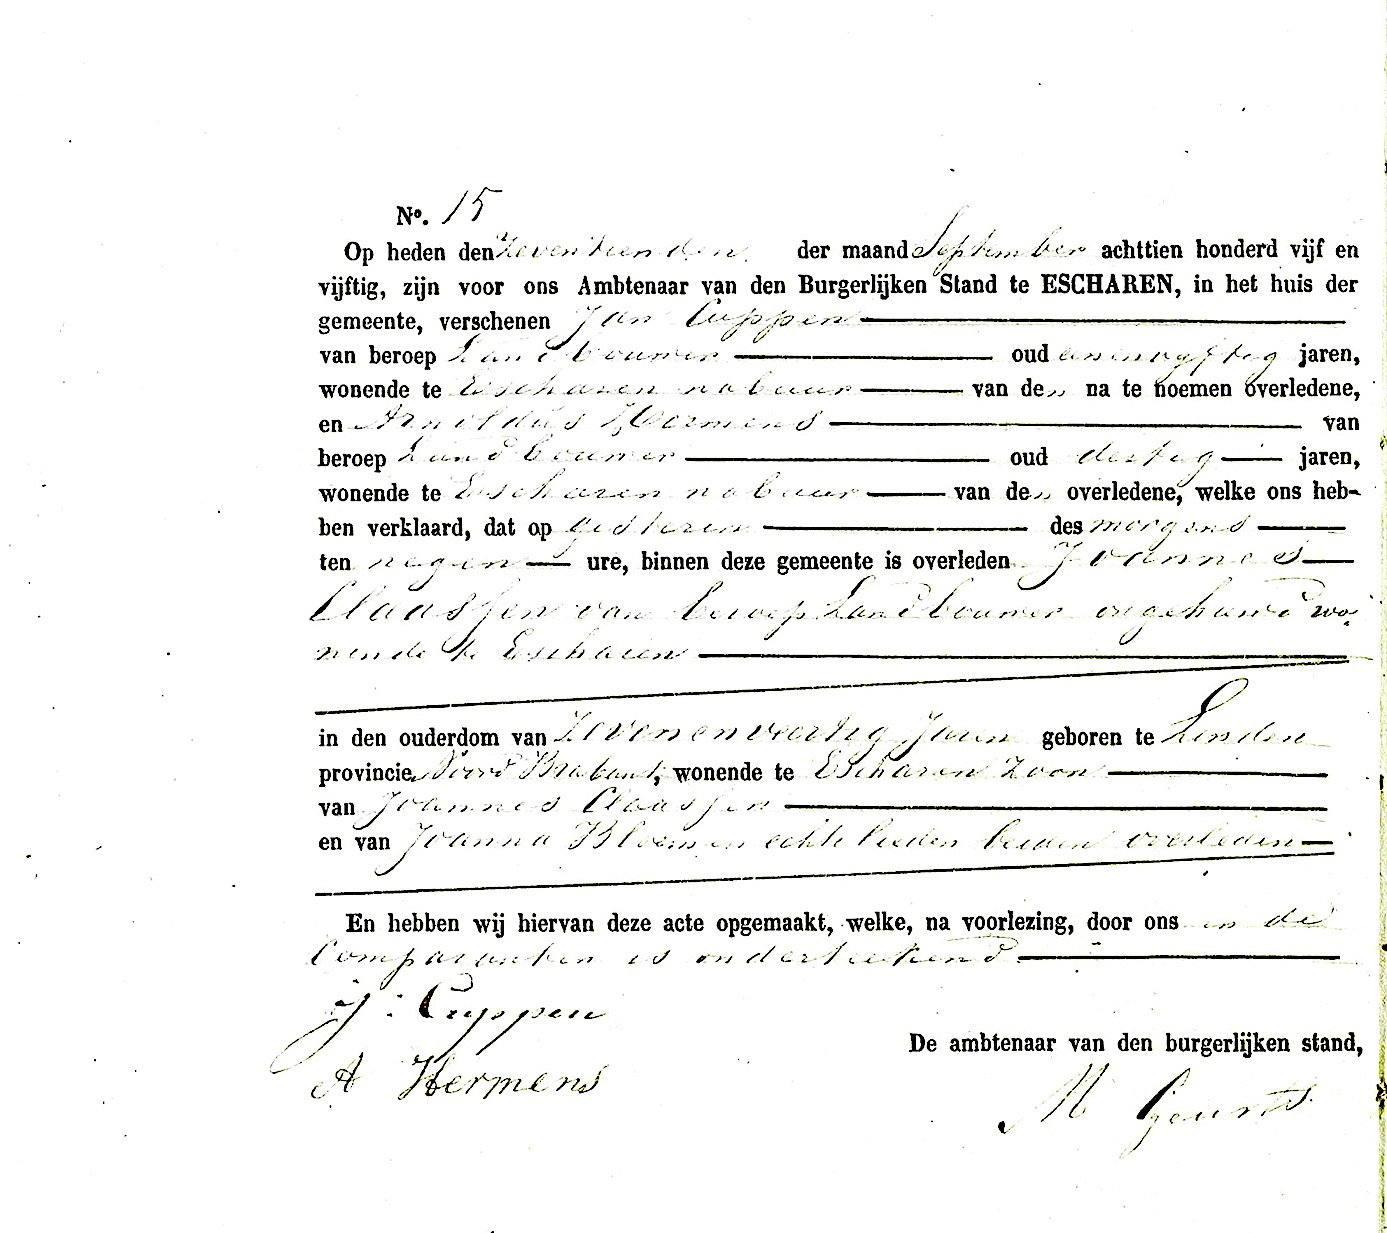 No. 15
Op heden den zeventienden der maand September achttien honderd vijf en
vijftig, zijn voor ons Ambtenaar van den Burgerlijken Stand te ESCHAREN, in het huis der
gemeente, verschenen Jan Cuppen
van beroep Landbouwer oud eenenvyftig jaren,
wonende te Escharen nabuur van den na te noemen overledene,
en Arnoldus Hermens van
beroep Landbouwer oud dertig jaren,
wonende te Escharen nabuur van den overledene, welke ons heb-
ben verklaard, dat op gisteren des morgens
ten negen ure, binnen deze gemeente is overleden Joannes
Claassen van beroep Landbouwer ongehuwd wo-
nende te Escharen
in den ouderdom van Zevenenveertig Jaren geboren te Linden
provincie Noord Braband, wonende te Escharen Zoon
van Joannes Claassen
en van Joanna Bloemen echtelieden beiden overleden
En hebben wij hiervan deze acte opgemaakt, welke, na voorlezing, door ons en de
Comparanten is onderteekend
J: Cuppen
De ambtenaar van den burgerlijken stand,
A Hermens
M Geurts